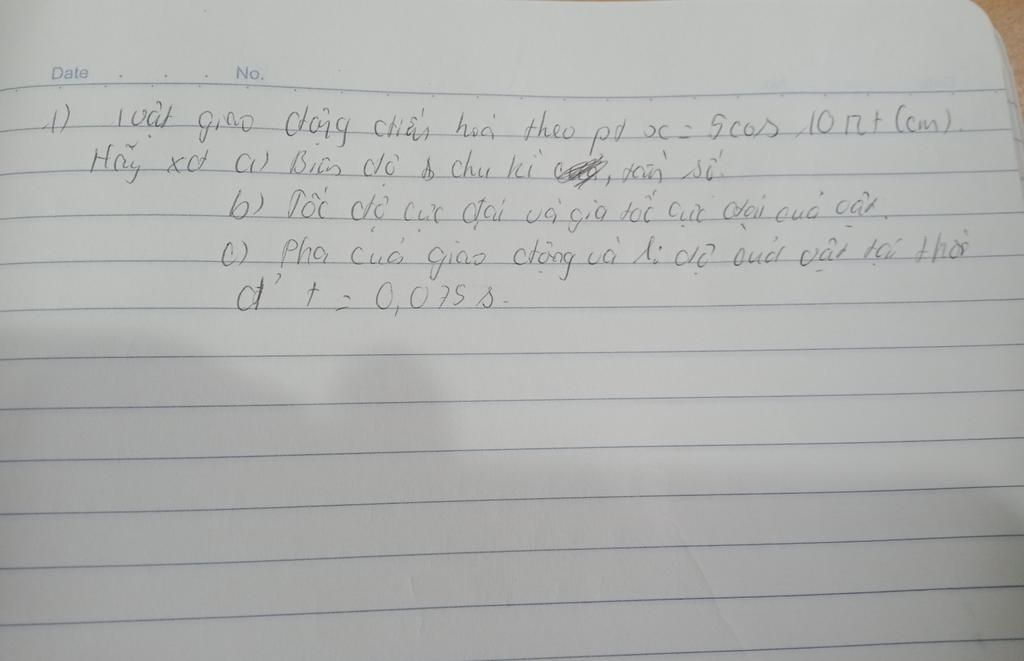 Date . . . No.
1) 1 vật giao động điều hoà theo pt x = 5cos 10πt (cm).
Hãy xđ a) Biên độ, chu kì, tần số.
b) Tốc độ cực đại và gia tốc cực đại của vật.
c) Pha của giao động và li độ của vật tại thời
đ' t = 0,075 s.